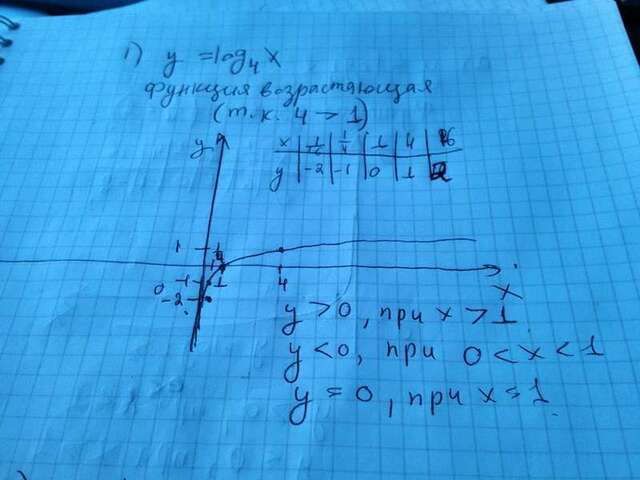 1) y = log₄ x
Функция возрастающая
(т.к. 4 > 1)
y
x | 1/4 | 1 | 4 | 16
y | -2 | -1 | 0 | 1 | 2
1
1
-1
0
-2
4
x
y > 0, при x > 1
y < 0, при 0 < x < 1
y = 0, при x = 1.